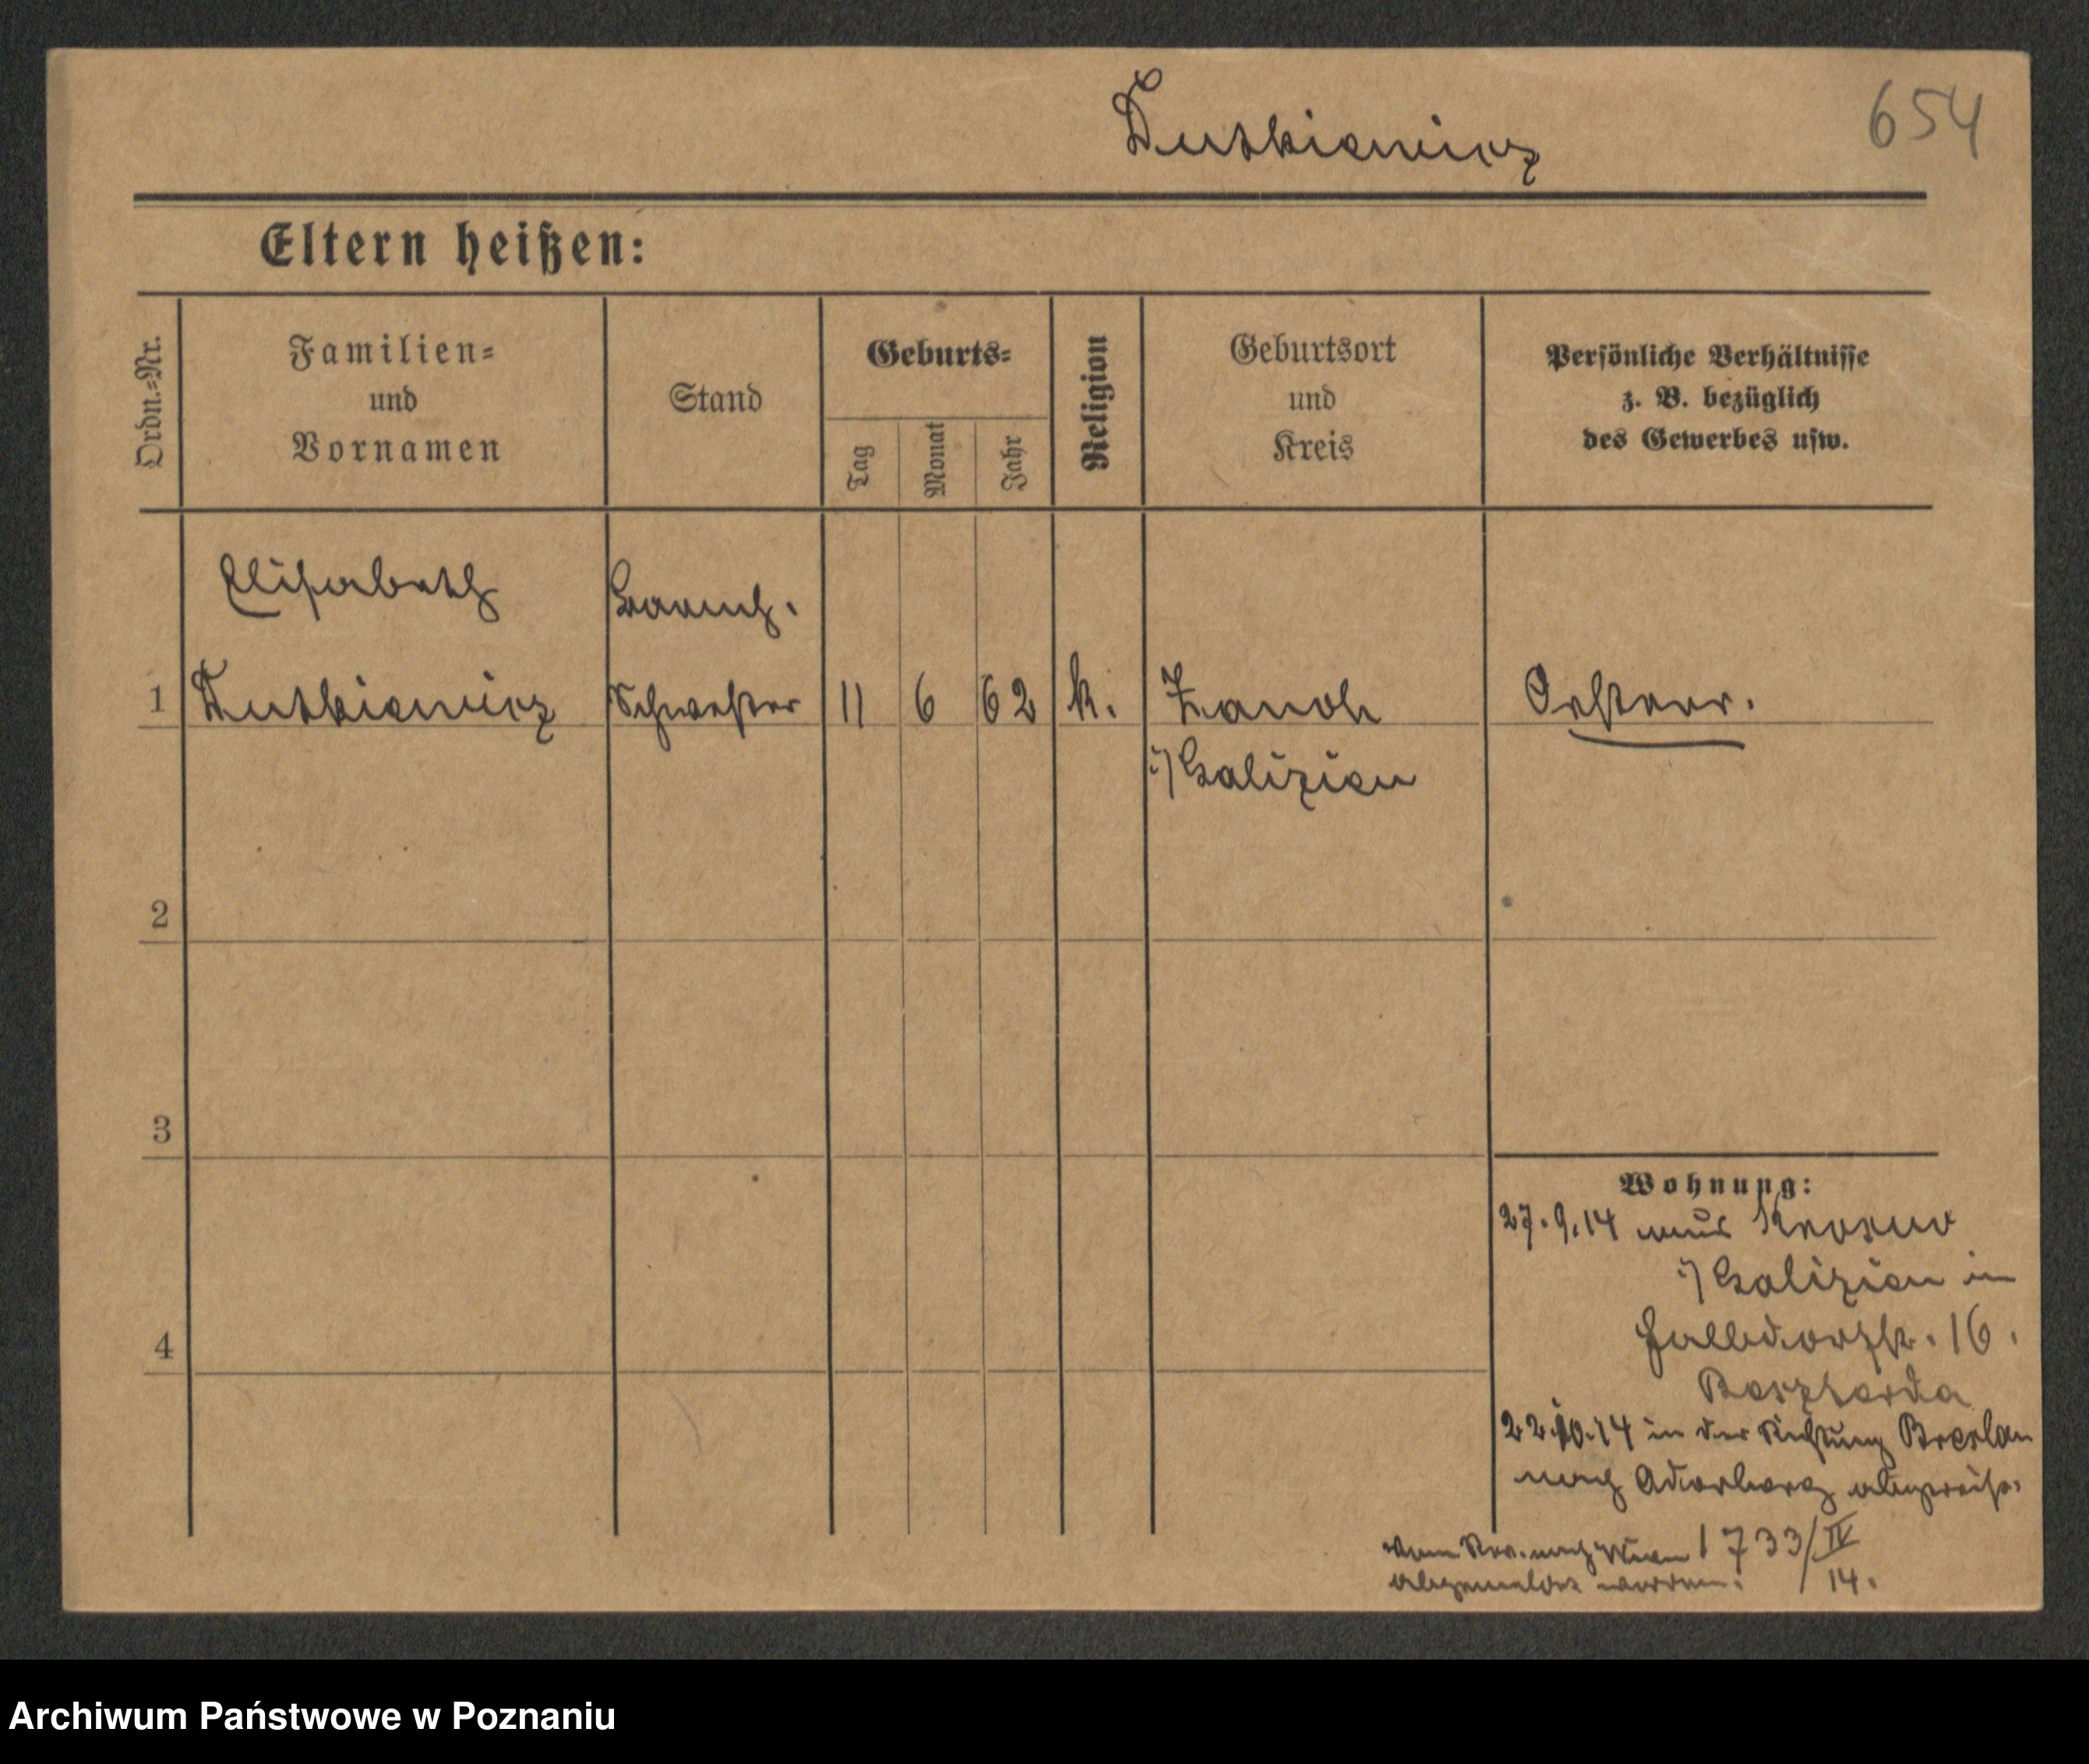 Dutkiewicz
654
Eltern heißen:
Ordn.-Nr.
Familien-
und
Vornamen
Stand
Geburts-
Tag
Monat
Jahr
Religion
Geburtsort
und
Kreis
Persönliche Verhältnisse
z. B. bezüglich
des Gewerbes usw.
Elisabeth
Barmh.
1 Dutkiewicz Schwester 11 6 62 k. Oesterr.
i/Galizien
2
3
4
Wohnung:
27.9.14 aus Krosno
i/Galizien in
Halbdorfstr. 16.
22.10.14 in der Richtung Breslau
nach Oderberg abgereist.
nach Wien 1733/IV
abgemeldet worden. 14.
Archiwum Państwowe w Poznaniu